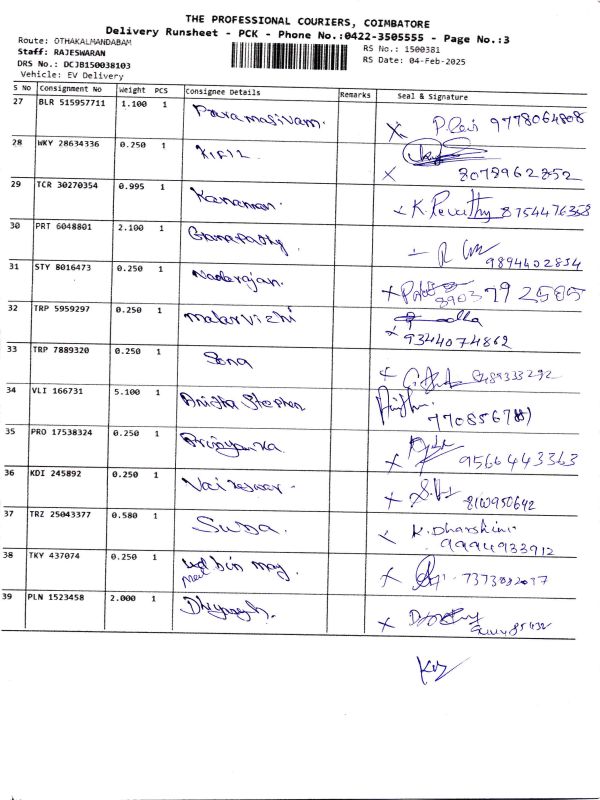 THE PROFESSIONAL COURIERS, COIMBATORE
Delivery Runsheet - PCK - Phone No.:0422-3505555 - Page No.:3
Route: OTHAKALMANDABAM
Staff: RAJESWARAN
DRS No.: DCJB150038103
Vehicle: EV Delivery
RS No.: 1500381
RS Date: 04-Feb-2025
S No Consignment No Weight PCS Consignee Details Remarks Seal & Signature
27 BLR 515957711 1.100 1 Paramasivam. 9778064808
28 WKY 28634336 0.250 1
8078962852
29 TCR 30270354 0.995 1 Kannan. K. Revathy 8754476358
30 PRT 6048801 2.100 1 Ganapathy. 9894402854
31 STY 8016473 0.250 1 Nadarajan.
32 TRP 5959297 0.250 1 malarvizhi
9344074862
33 TRP 7889320 0.250 1 Sona
34 VLI 166731 5.100 1 Anisha Stephen
35 PRO 17538324 0.250 1 Priyanka 9566443363
36 KDI 245892 0.250 1 8100950642
37 TRZ 25043377 0.580 1 Suba. K. Dharshini
9994933912
38 TKY 437074 0.250 1
39 PLN 1523458 2.000 1